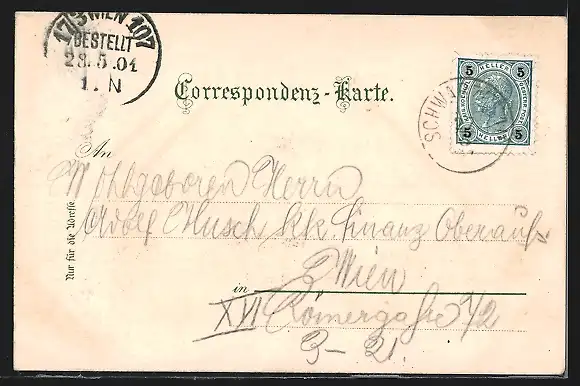 17/3 WIEN 107
BESTELLT
28.5.01
1. N
Correspondenz-Karte.
5 HELLER 5
5 HELLER 5
SCHWA
An
Wohlgeboren Herrn
Adolf Husch kk. Finanz Oberaufs
Wien
in
XVI Römergasse 1/2
3-21.
Nur für die Adresse